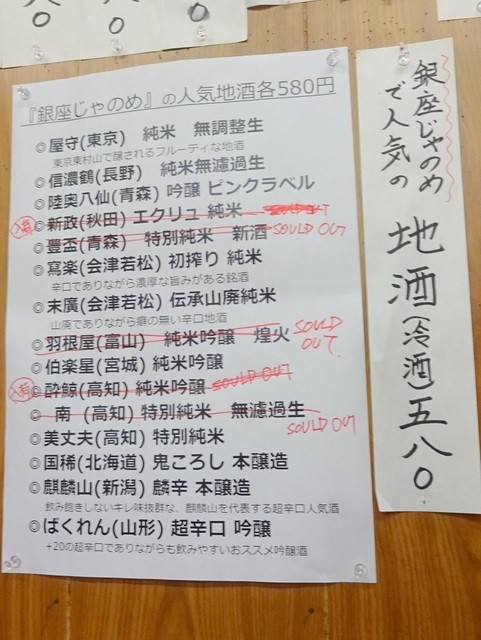 『銀座じゃのめ』の人気地酒各580円
◎屋守(東京) 純米 無調整生
東京東村山で醸されるフルーティな地酒
◎信濃鶴(長野) 純米無濾過生
◎陸奥八仙(青森) 吟醸 ピンクラベル
入荷 ◎新政(秋田) エクリュ 純米 SOULD OUT
◎豊盃(青森) 特別純米 新酒 SOULD OUT
◎寫楽(会津若松) 初搾り 純米
辛口でありながら濃厚な旨みがある銘酒
◎末廣(会津若松) 伝承山廃純米
山廃でありながら癖の無い辛口地酒
◎羽根屋(富山) 純米吟醸 煌火 SOULD OUT.
◎伯楽星(宮城) 純米吟醸
入荷 ◎酔鯨(高知) 純米吟醸 SOULD OUT
◎南 (高知) 特別純米 無濾過生 SOULD OUT
◎美丈夫(高知) 特別純米
◎国稀(北海道) 鬼ころし 本醸造
◎麒麟山(新潟) 麟辛 本醸造
飲み飽きしないキレ味抜群な、麒麟山を代表する超辛口人気酒
◎ばくれん(山形) 超辛口 吟醸
+20の超辛口でありながらも飲みやすいおススメ吟醸酒
銀座じゃのめ
で人気の
地酒(冷酒)五八〇